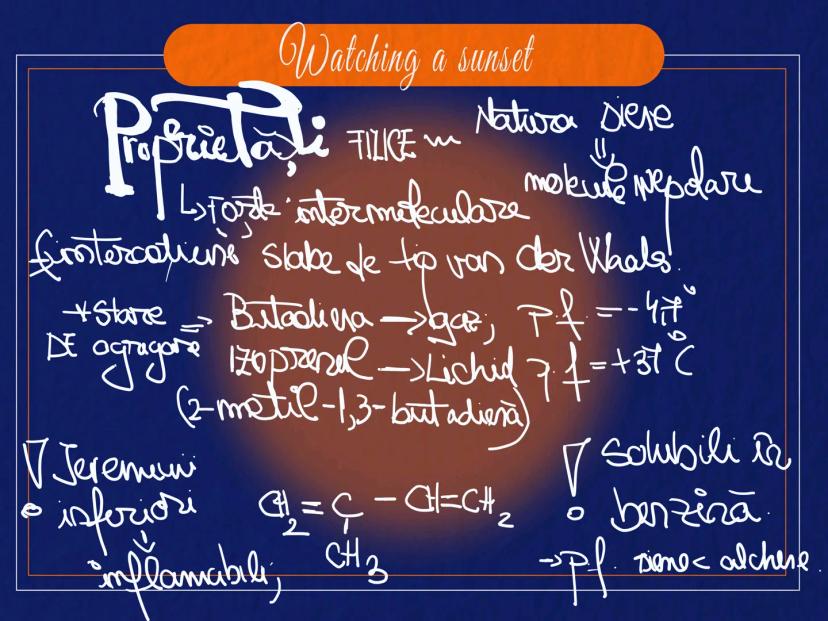 Watching a sunset
Proprietăți FIZICE Natura diene
⇓
molecule nepolare
↳ Forțe intermoleculare
(interacțiuni slabe de tip van der Waals.
→ Stare => Butadiena → gaz, p.f. = -4,7°
DE agregare Izoprenul → Lichid p.f = +37°C
(2-metil-1,3-butadienă)
! Termeni ! Solubili în
inferiori CH2 = C - CH=CH2 benzină.
⇓ CH3 → p.f. diene < alchene.
inflamabili,